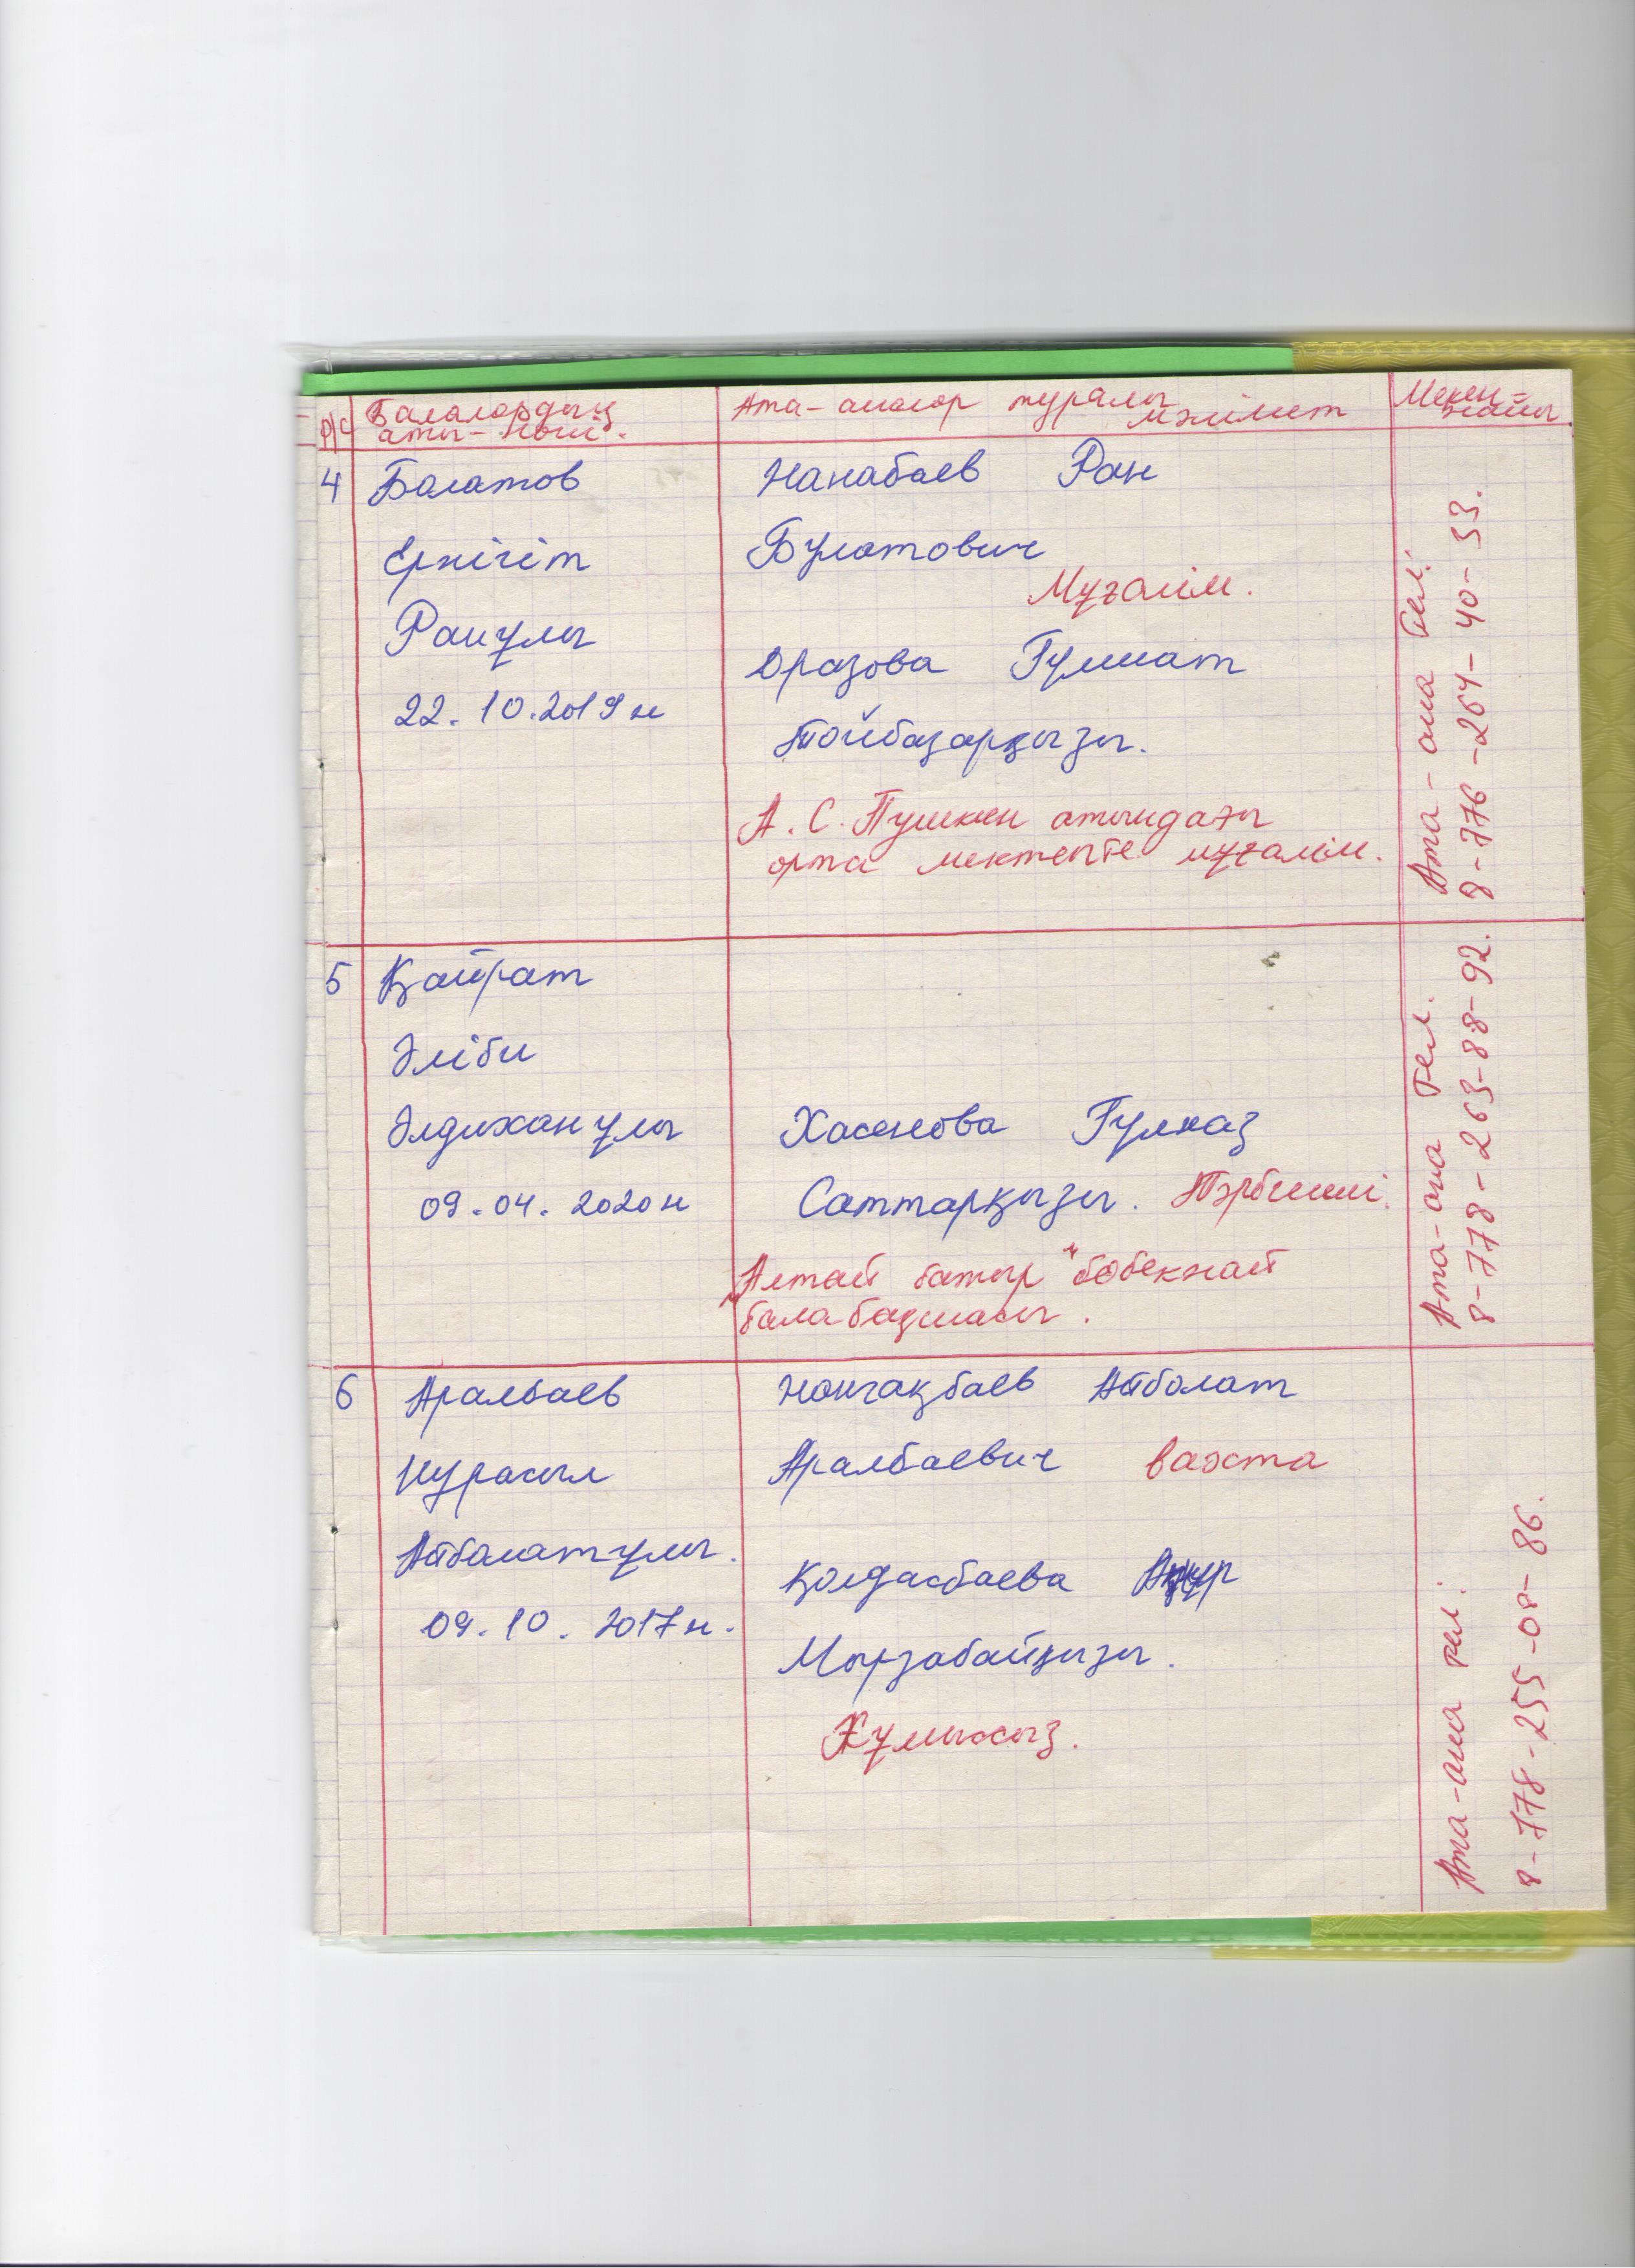 р/с
Балалардың
аты-жөні.
Ата-аналар туралы
мәлімет
Мекен-
жайы
4
Болатов
Ержігіт
Раиұлы
22.10.2019ж
Жанабаев Раи
Булатович
Мұғалім.
Оразова Гулшат
Тойбазарқызы.
А.С. Пушкин атындағы
орта мектепте мұғалім.
Ата-ана тел:
8-776-264-40-33.
5
Қайрат
Әліби
Әлдиханұлы
09.04.2020ж
Хасенова Гулназ
Саттарқызы. Тәрбиеші.
"Алтай батыр" бөбекжай
балабақшасы.
Ата-ана тел.
8-778-263-88-92.
6
Аралбаев
Нұрасыл
Айболатұлы.
09.10.2017ж.
Жонғақбаев Айболат
Аралбаевич вахта
Қолдасбаева
Мырзабайқызы.
Жұмыссыз.
Ата-ана тел:
8-778-255-08-86.